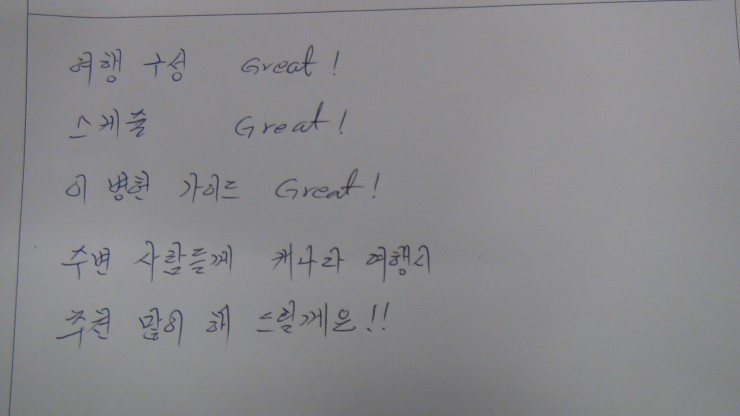 여행 구성 Great!
스케줄 Great!
이병헌 가이드 Great!
주변 사람들께 캐나다 여행시
추천 많이 해 드릴께요!!